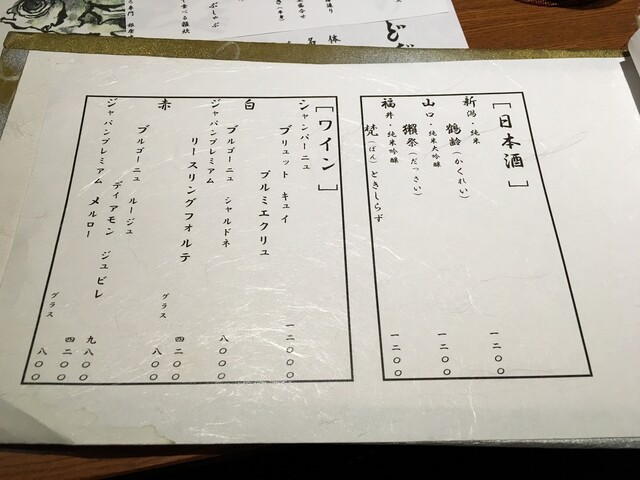 ［日本酒］
新潟・純米
鶴齢（かくれい） 一二〇〇
山口・純米大吟醸
獺祭（だっさい） 一二〇〇
福井・純米吟醸
梵（ぼん）ときしらず 一二〇〇
［ワイン］
シャンパーニュ
ブリュット キュイ
プルミエクリュ 一二〇〇〇
白
ブルゴーニュ シャルドネ 八〇〇〇
ジャパンプレミアム
リースリングフォルテ 四二〇〇
グラス 八〇〇
赤
ブルゴーニュ ルージュ
ディアモン ジュビレ 九八〇〇
ジャパンプレミアム メルロー 四二〇〇
グラス 八〇〇